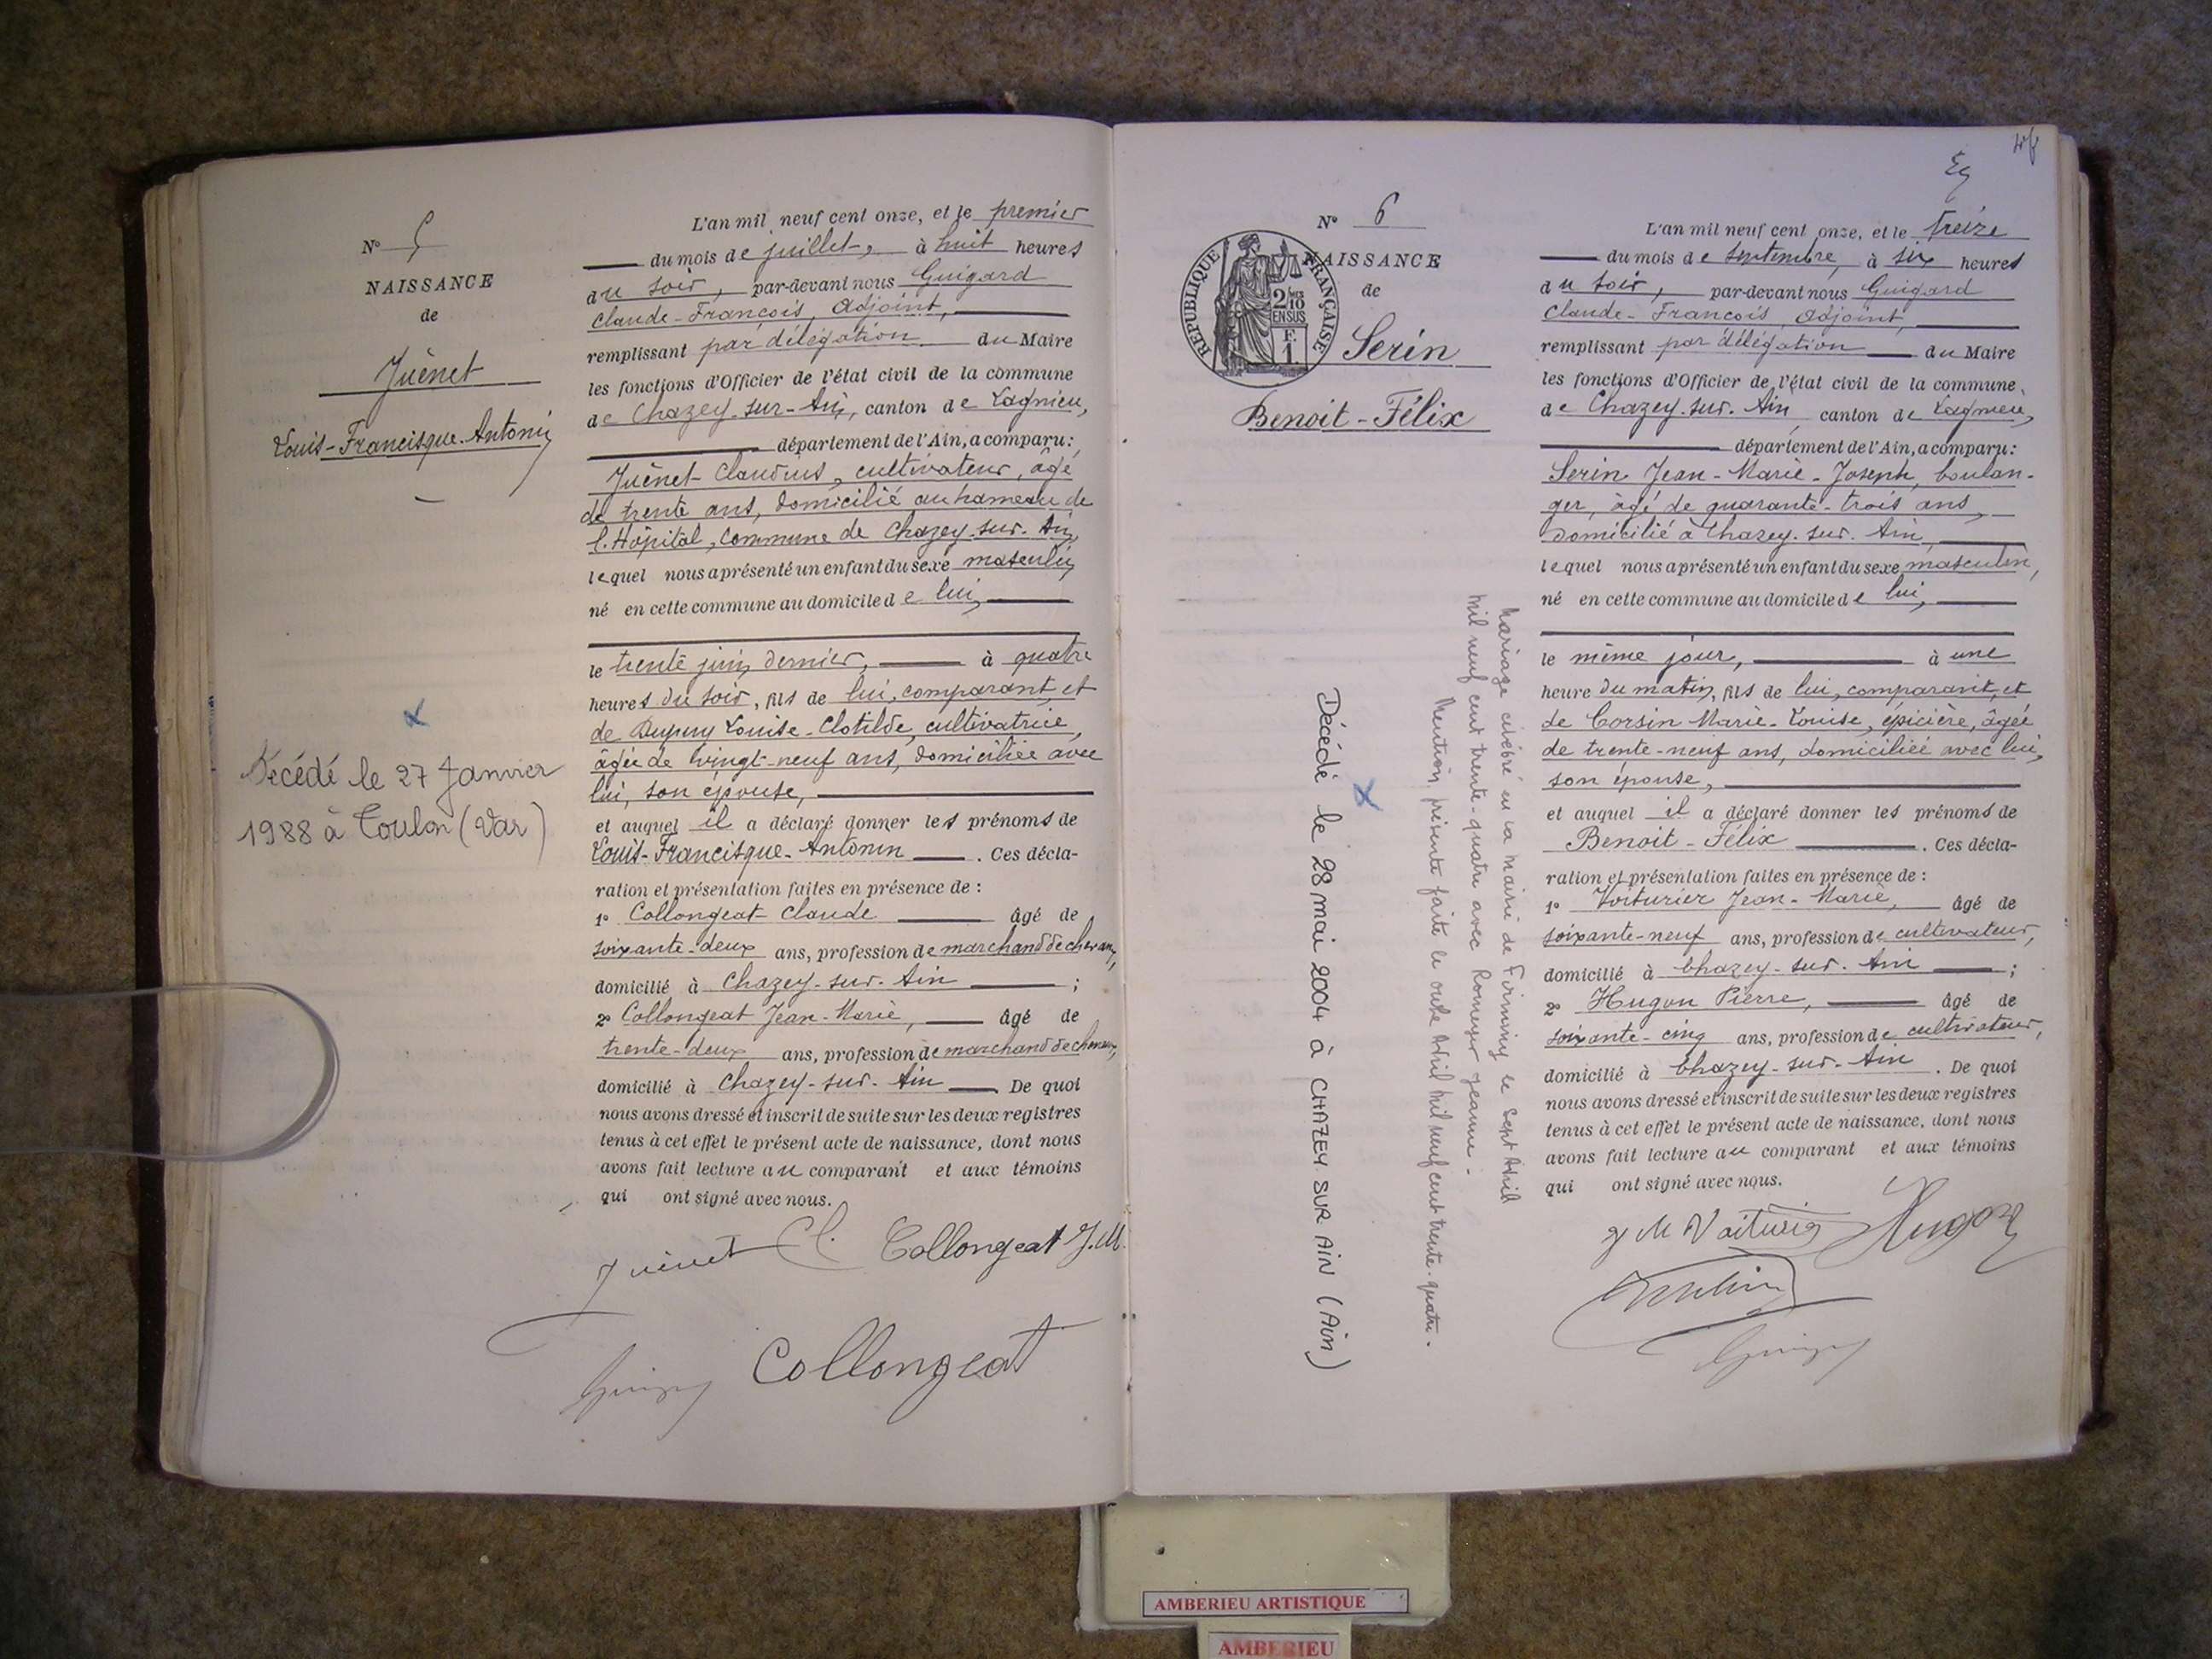 N° 5
NAISSANCE
de
Juènet
Louis-Francisque-Antonin
Décédé le 27 Janvier
1988 à Toulon (Var)
L'an mil neuf cent onze, et le premier
du mois de juillet, à huit heures
du soir, par-devant nous Guigard
Claude-François, Adjoint,
remplissant par délégation du Maire
les fonctions d'Officier de l'état civil de la commune
de Chazey-sur-Ain, canton de Lagnieu,
département de l'Ain, a comparu:
Juènet Claudius, cultivateur, âgé
de trente ans, domicilié au hameau de
l'Hôpital, commune de Chazey-sur-Ain,
lequel nous a présenté un enfant du sexe masculin,
né en cette commune au domicile de lui,
le trente juin dernier, à quatre
heures du soir, fils de lui, comparant, et
de Dupuy Louise-Clotilde, cultivatrice,
âgée de vingt-neuf ans, domiciliée avec
lui, son épouse,
et auquel il a déclaré donner les prénoms de
Louis-Francisque-Antonin. Ces décla-
ration et présentation faites en présence de :
1° Collongeat Claude âgé de
soixante-deux ans, profession de marchand de chevaux,
domicilié à Chazey-sur-Ain ;
2° Collongeat Jean-Marie, âgé de
trente-deux ans, profession de marchand de chevaux,
domicilié à Chazey-sur-Ain De quoi
nous avons dressé et inscrit de suite sur les deux registres
tenus à cet effet le présent acte de naissance, dont nous
avons fait lecture au comparant et aux témoins
qui ont signé avec nous.
Juènet Cl. Collongeat J.M.
Collongeat
N° 6
NAISSANCE
de
RÉPUBLIQUE FRANÇAISE
2/10 EN SUS
F. 1
Serin
Benoit-Félix
Mariage célébré en la mairie de Firminy le sept Avril
mil neuf cent trente-quatre avec Romeyer Jeanne.-
Mention présente faite le onze Avril mil neuf cent trente-quatre.
Décédé le 28 mai 2004 à CHAZEY SUR AIN (Ain)
L'an mil neuf cent onze, et le treize
du mois de septembre, à six heures
du soir, par-devant nous Guigard
Claude-François, Adjoint,
remplissant par délégation du Maire
les fonctions d'Officier de l'état civil de la commune
de Chazey-sur-Ain canton de Lagnieu,
département de l'Ain, a comparu:
Serin Jean-Marie-Joseph, boulan-
ger, âgé de quarante-trois ans,
domicilié à Chazey-sur-Ain,
lequel nous a présenté un enfant du sexe masculin,
né en cette commune au domicile de lui,
le même jour, à une
heure du matin, fils de lui, comparant, et
de Corsin Marie-Louise, épicière, âgée
de trente-neuf ans, domiciliée avec lui,
son épouse,
et auquel il a déclaré donner les prénoms de
Benoit-Félix. Ces décla-
ration et présentation faites en présence de :
1° Voiturier Jean-Marie, âgé de
soixante-neuf ans, profession de cultivateur,
domicilié à Chazey-sur-Ain ;
2° Hugon Pierre, âgé de
soixante-cinq ans, profession de cultivateur,
domicilié à Chazey-sur-Ain. De quoi
nous avons dressé et inscrit de suite sur les deux registres
tenus à cet effet le présent acte de naissance, dont nous
avons fait lecture au comparant et aux témoins
qui ont signé avec nous.
J M Voiturier Hugon
AMBERIEU ARTISTIQUE
AMBERIEU